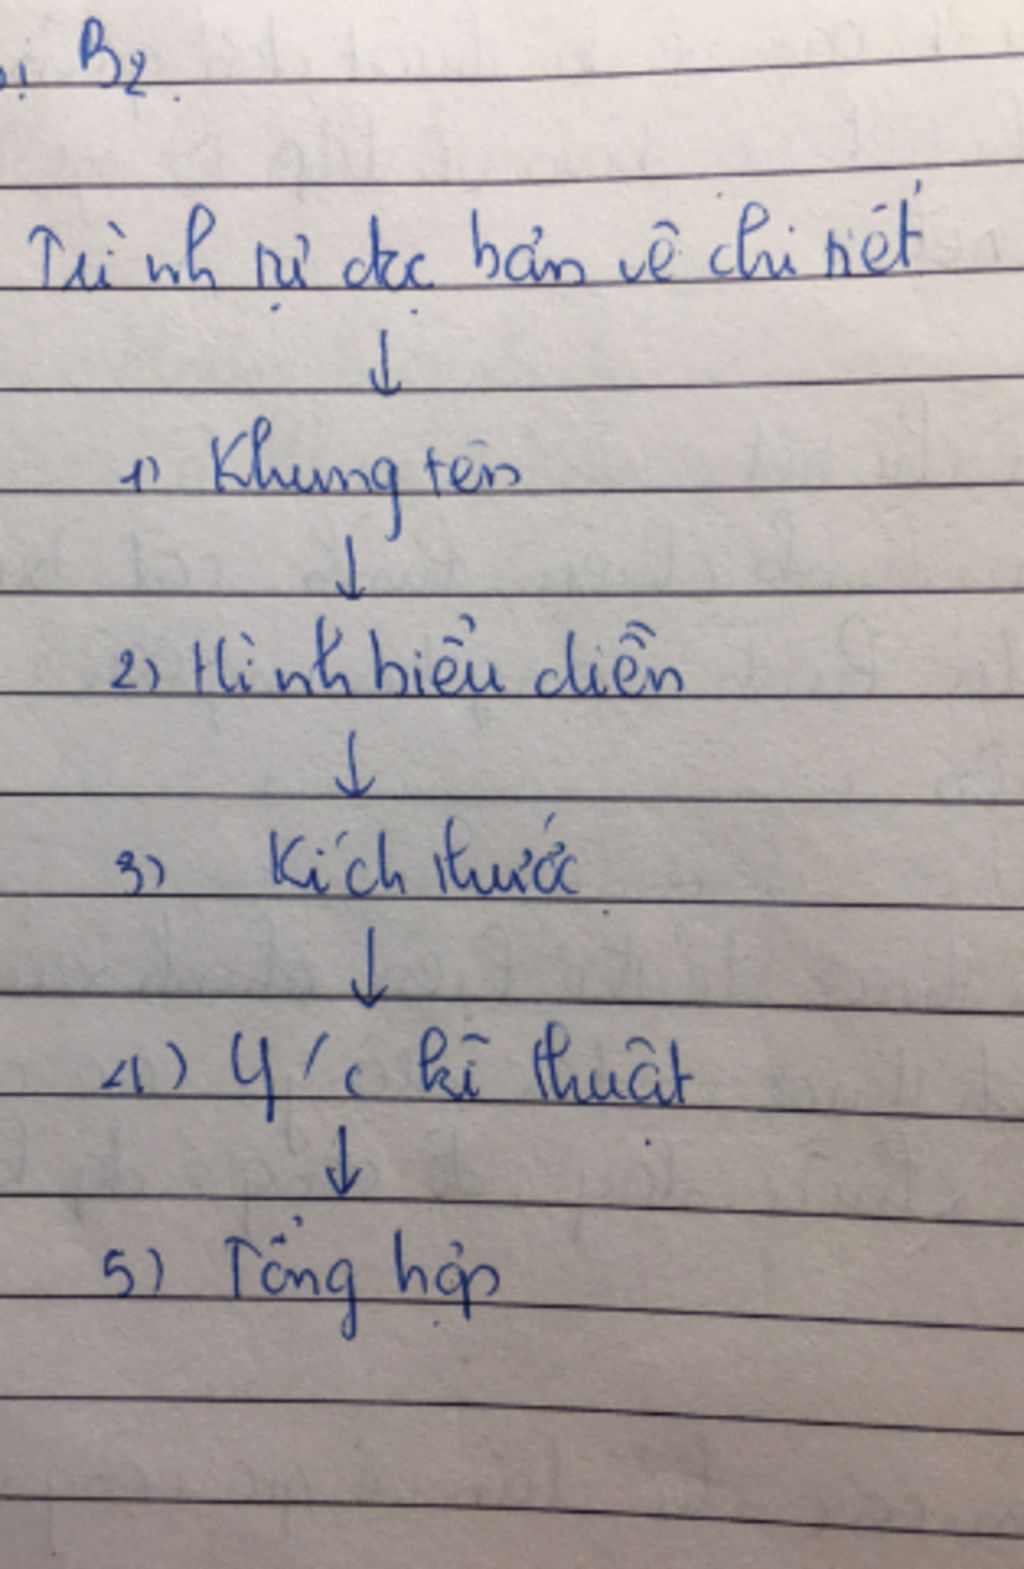 B2.
Trình tự đọc bản vẽ chi tiết
↓
1) Khung tên
↓
2) Hình biểu diễn
↓
3) Kích thước
↓
4) Y/c kĩ thuật
↓
5) Tổng hợp